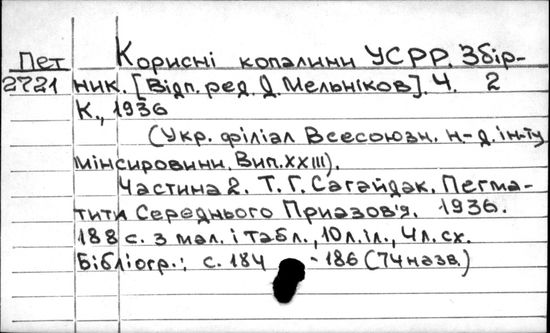 Пет Корисні копалини УСРР. Збір-
2721 ник. [Відп. ред. Д. Мельніков]. Ч. 2
К., 1936
(Укр. філіал Всесоюзн. н.-д. ін-ту
мінсировини. Вип. XXIII).
Частина 2. Т. Г. Сагайдак. Пегма-
тити Середнього Приазов'я. 1936.
188 с. з мал. і табл., 10 л. іл., 4 л. сх.
Бібліогр.: с. 184 - 186 (74 назв.)